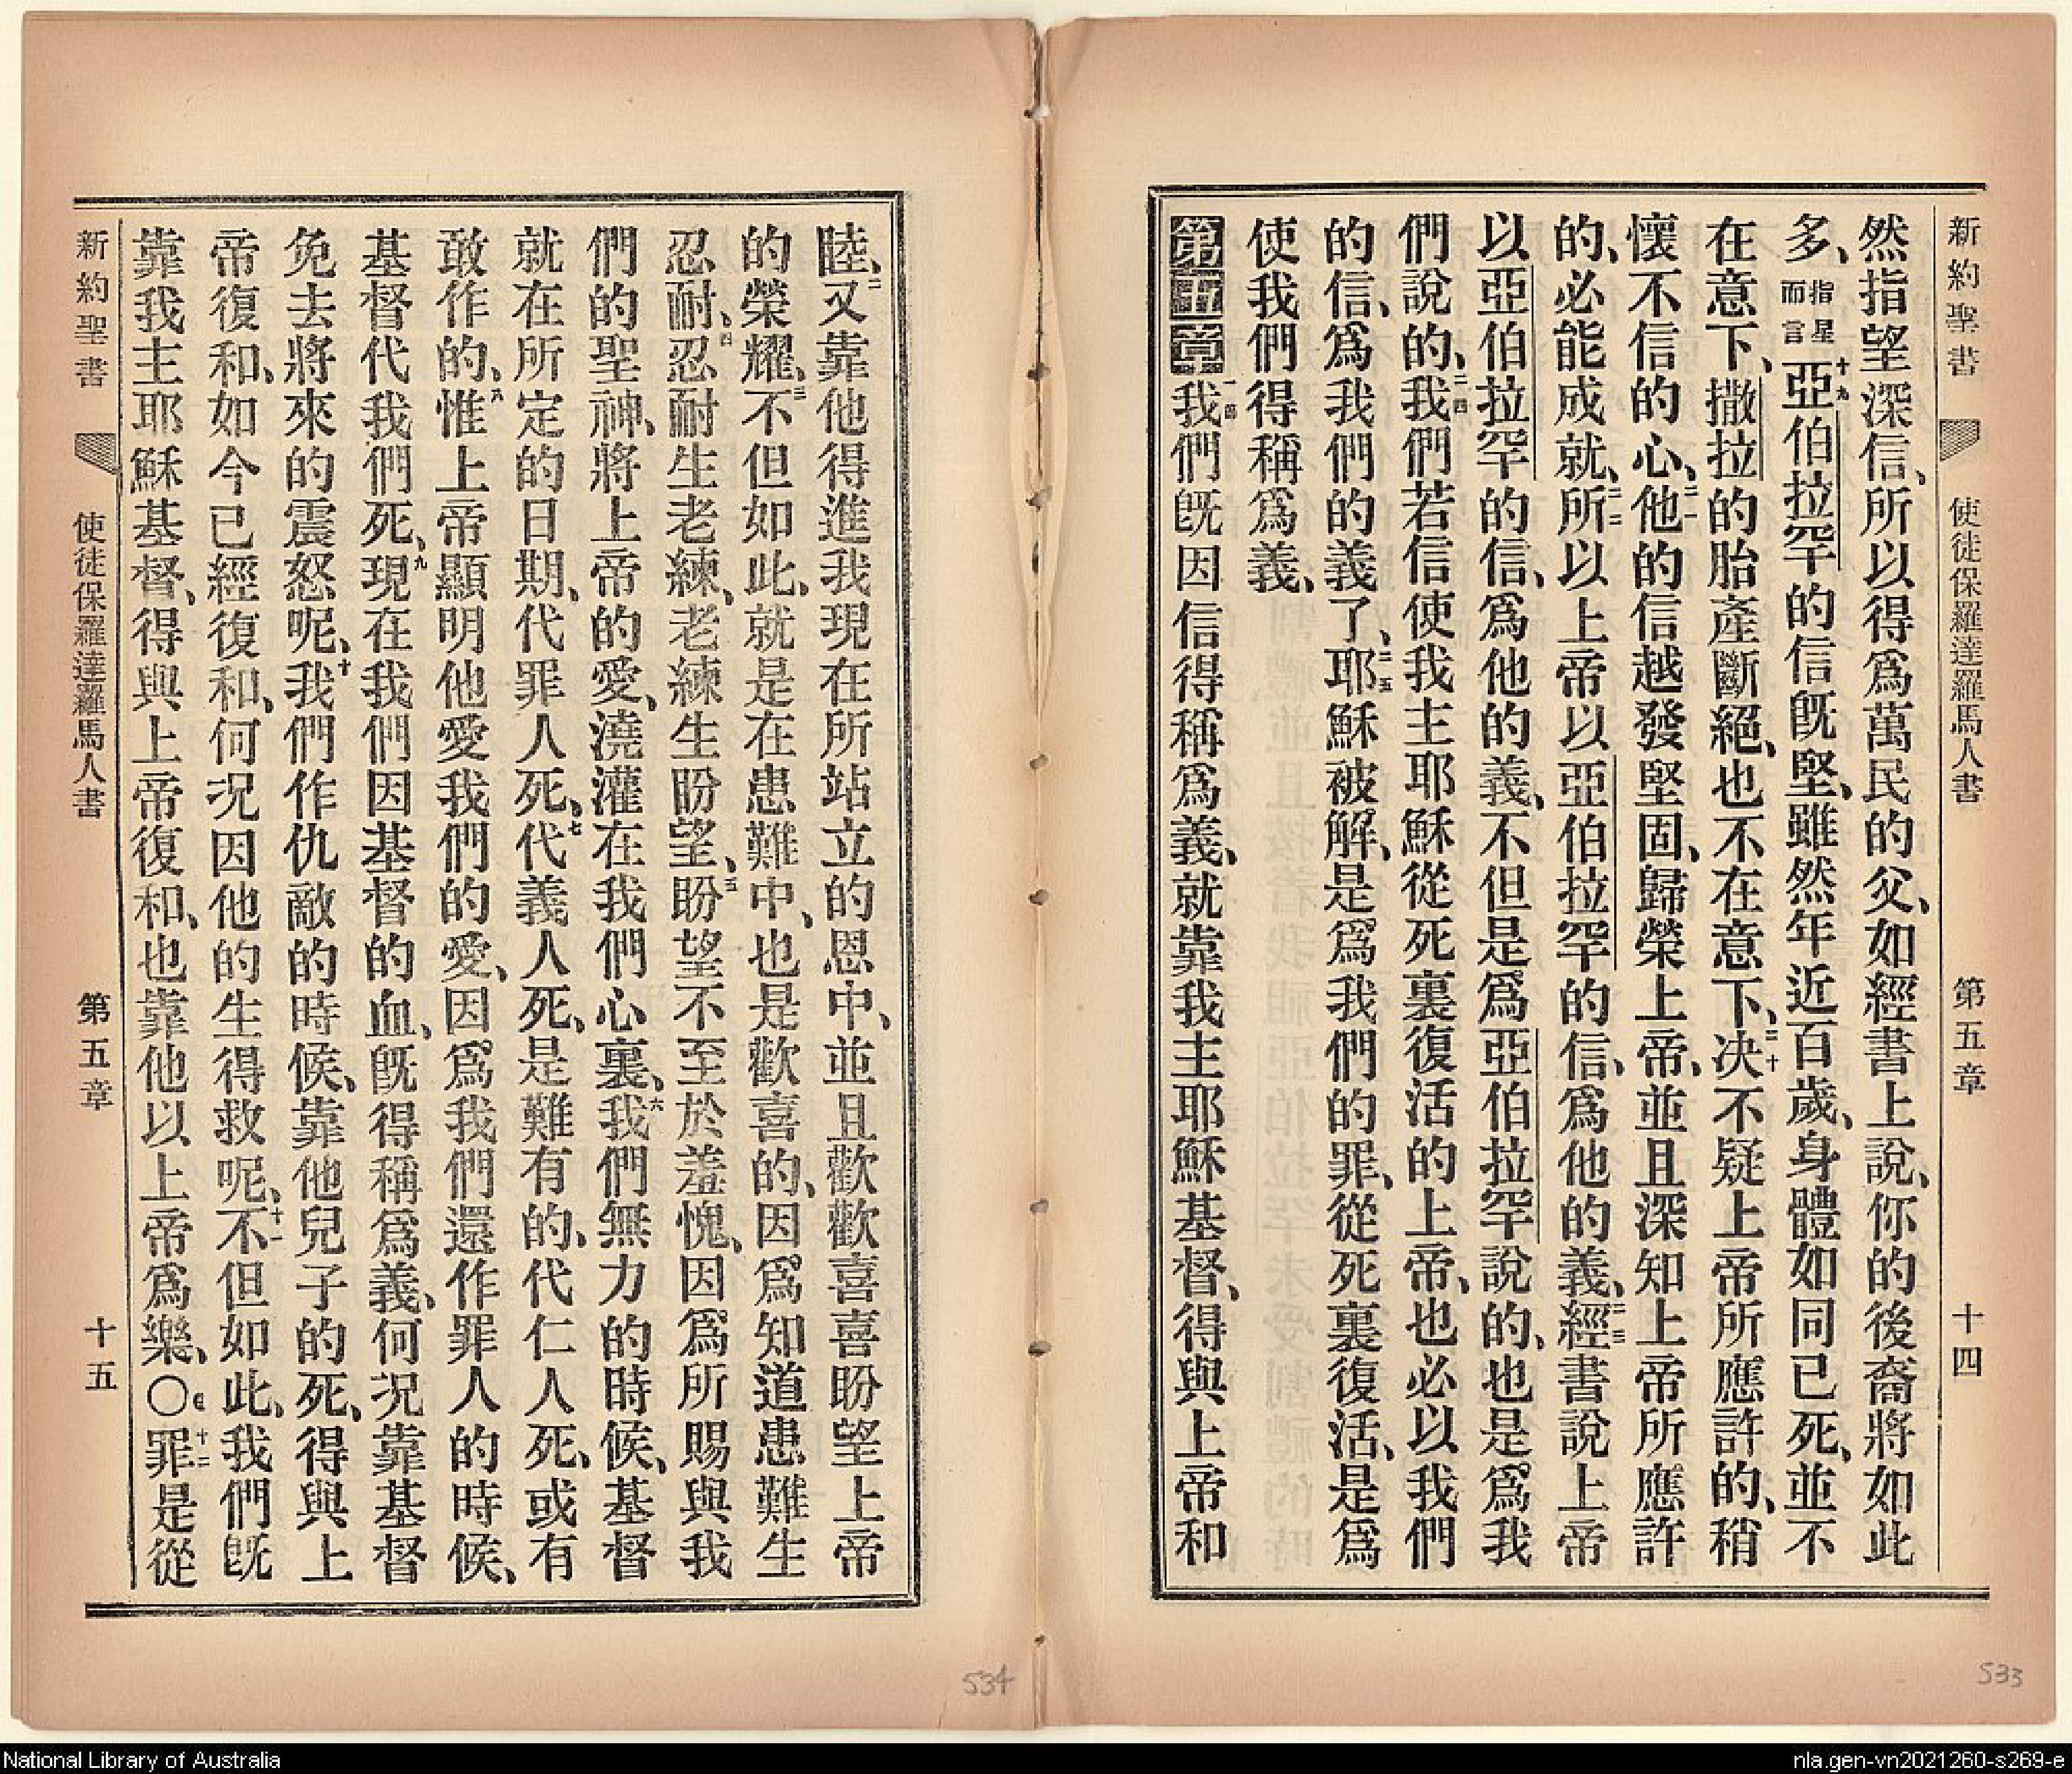 新約聖書 使徒保羅達羅馬人書 第五章 十四
然指望深信、所以得爲萬民的父、如經書上說、你的後裔將如此
多、指星而言十九亞伯拉罕的信旣堅、雖然年近百歲、身體如同已死、並不
在意下、撒拉的胎產斷絕、也不在意下、二十决不疑上帝所應許的、稍
懷不信的心、二一他的信越發堅固、歸榮上帝、並且深知上帝所應許
的、必能成就、二二所以上帝以亞伯拉罕的信、爲他的義、二三經書說上帝
以亞伯拉罕的信、爲他的義、不但是爲亞伯拉罕說的、也是爲我
們說的、二四我們若信使我主耶穌從死裏復活的上帝、也必以我們
的信、爲我們的義了、二五耶穌被解、是爲我們的罪、從死裏復活、是爲
使我們得稱爲義、
第五章一我們旣因信得稱爲義、就靠我主耶穌基督、得與上帝和
睦、二又靠他得進我現在所站立的恩中、並且歡歡喜喜盼望上帝
的榮耀、三不但如此、就是在患難中、也是歡喜的、因爲知道患難生
忍耐、四忍耐生老練、老練生盼望、五盼望不至於羞愧、因爲所賜與我
們的聖神、將上帝的愛、澆灌在我們心裏、六我們無力的時候、基督
就在所定的日期、代罪人死、七代義人死、是難有的、代仁人死、或有
敢作的、八惟上帝顯明他愛我們的愛、因爲我們還作罪人的時候、
基督代我們死、九現在我們因基督的血、旣得稱爲義、何况靠基督
免去將來的震怒呢、十我們作仇敵的時候、靠他兒子的死、得與上
帝復和、如今已經復和、何况因他的生得救呢、十一不但如此、我們旣
靠我主耶穌基督、得與上帝復和、也靠他以上帝爲樂、〇十二罪是從
新約聖書 使徒保羅達羅馬人書 第五章 十五
534
533
National Library of Australia
nla.gen-vn2021260-s269-e